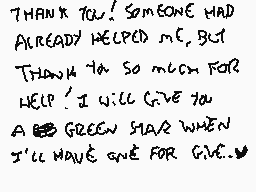 THANK YOU! SOMEONE HAD
ALREADY HELPED ME, BUT
THANK YOU SO MUCH FOR
HELP! I WILL GIVE YOU
A GREEN STAR WHEN
I'LL HAVE ONE FOR GIVE..♥